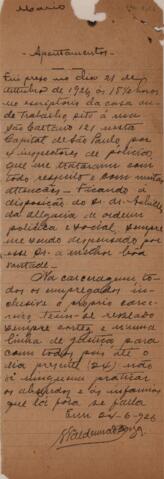 Mario
- Apontamentos -
Fui preso no dia 21 de
outubro de 1926, às 15½ horas
no escriptorio da casa on-
de trabalho, sito à rua
São Caetano 121 nesta
Capital de São Paulo, por
inspectores de policia,
que me trataram com
todo respeito e com muitas
attenções - Ficando à
disposição do Sr. Dr.
delegacia de ordem
politica e social, sempre
me sendo dispensado por
esse Sr. a melhor boa
vontade.
Na carceragem to-
dos os empregados in-
clusive o proprio carce-
reiro tem-se revelado
sempre cortez e numa
linha de justiça para
com todos, pois até o
dia presente (24) não
vi ninguem praticar
os absurdos e as infamias
que lá fóra se falla
Em 24-6-926